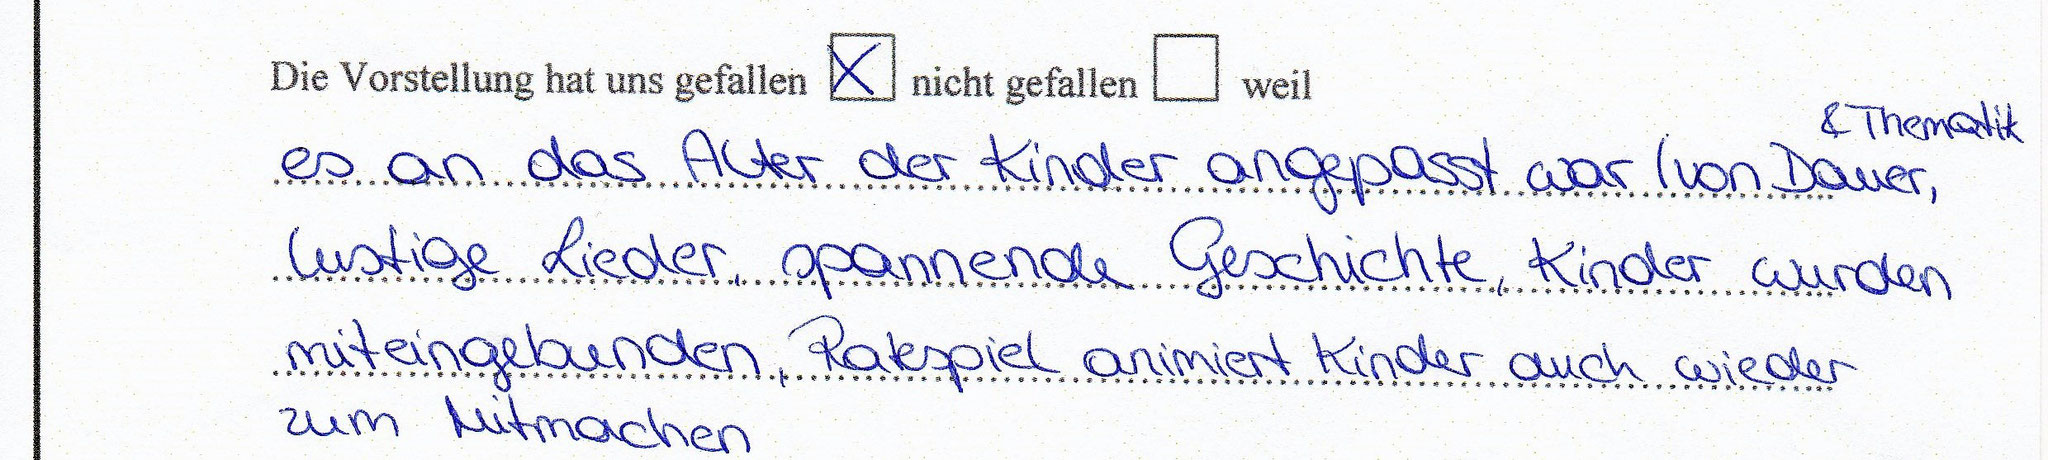 Die Vorstellung hat uns gefallen ☒ nicht gefallen ☐ weil
& Thematik
es an das Alter der Kinder angepasst war (von Dauer,
lustige Lieder, spannende Geschichte, Kinder wurden
miteingebunden, Ratespiel animiert Kinder auch wieder
zum Mitmachen